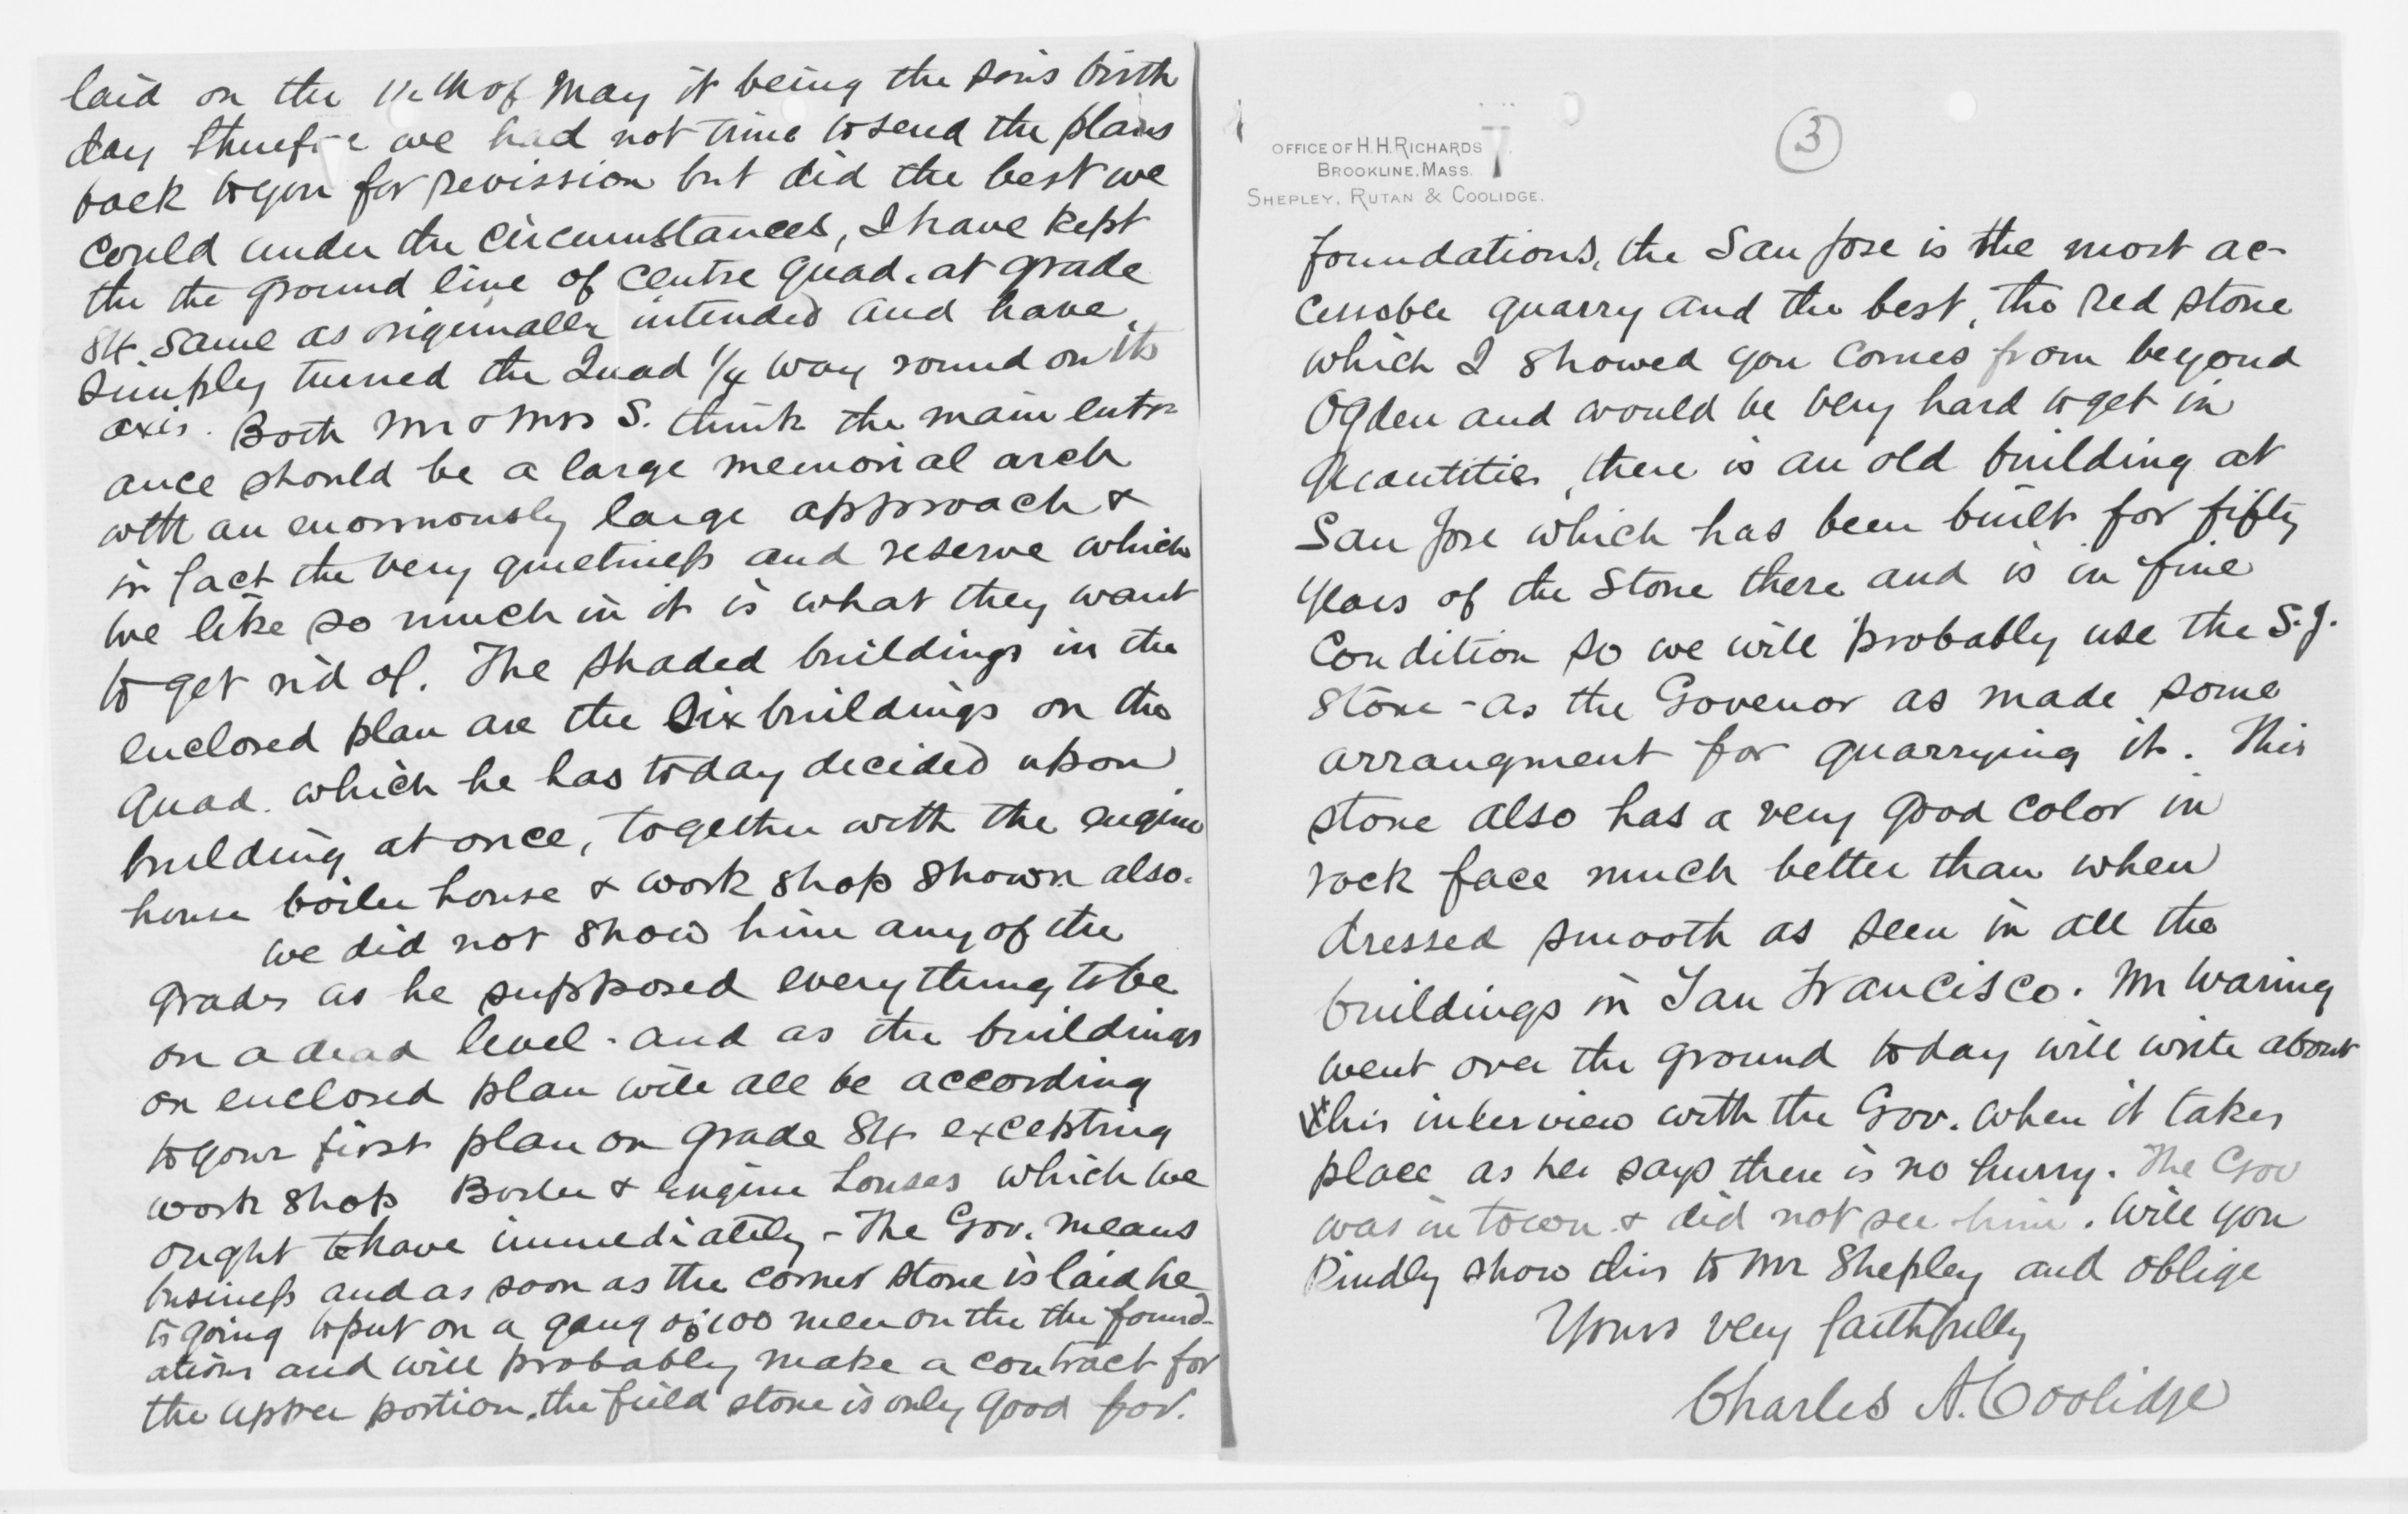 laid on the 14th of May it being the son's birth
day therefore we had not time to send the plans
back to you for revission but did the best we
could under the circumstances, I have kept
the the ground line of centre quad. at grade
84 same as originally intended and have
simply turned the Quad 1/4 way round on its
axis. Both Mr & Mrs S. think the main entr-
ance should be a large memorial arch
with an enormously large approach &
in fact the very quietness and reserve which
we like so much in it is what they want
to get rid of. The shaded buildings in the
enclosed plan are the six buildings on the
Quad. which he has today decided upon
building at once, together with the engine
house boiler house & work shop shown also.
We did not show him any of the
grades as he supposed everything to be
on a dead level - and as the buildings
on enclosed plan will all be according
to your first plan on grade 84 excepting
work shop Boiler & Engine houses which we
ought to have immediately - The Gov. means
business and as soon as the corner stone is laid he
is going to put on a gang of 100 men on the the found-
ations and will probably make a contract for
the upper portion, the field stone is only good for
OFFICE OF H. H. RICHARDS
BROOKLINE. MASS.
SHEPLEY, RUTAN & COOLIDGE.
3
foundations, the San Jose is the most ac-
cessable quarry and the best, the red stone
which I showed you comes from beyond
Ogden and would be very hard to get in
quantities, there is an old building at
San Jose which has been built for fifty
years of the stone there and is in fine
condition so we will probably use the S.J.
stone - as the Govenor as made some
arrangment for quarrying it. This
stone also has a very good color in
rock face much better than when
dressed smooth as seen in all the
buildings in San Francisco. Mr Waring
went over the ground today will write about
this interview with the Gov. when it takes
place as he says there is no hurry. The Gov
was in town & did not see him. Will you
kindly show this to Mr Shepley and oblige
Yours very faithfully
Charles A. Coolidge